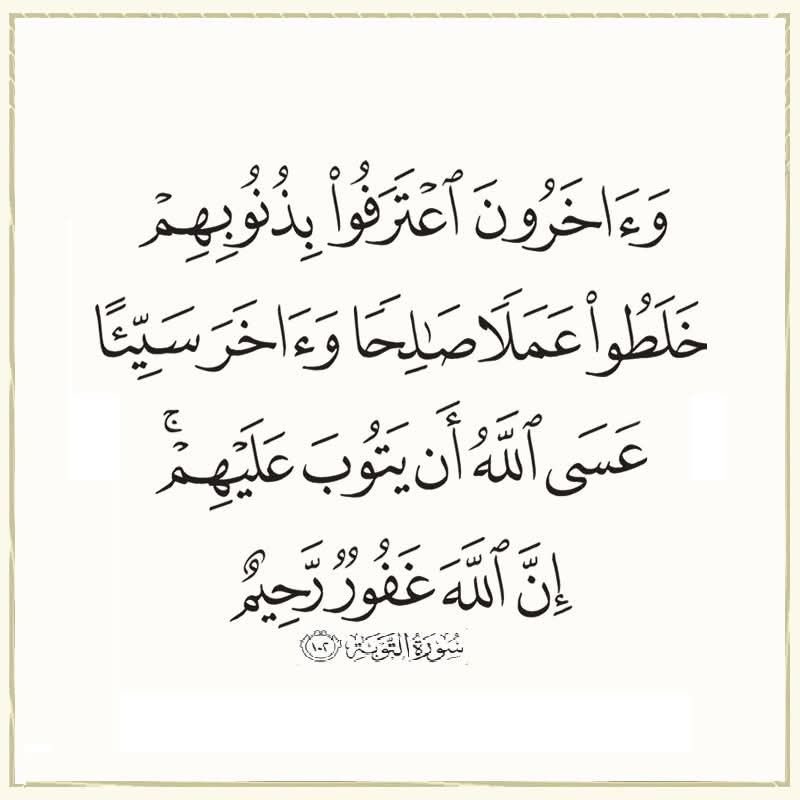 وَءَاخَرُونَ ٱعْتَرَفُوا۟ بِذُنُوبِهِمْ
خَلَطُوا۟ عَمَلًا صَـٰلِحًا وَءَاخَرَ سَيِّئًا
عَسَى ٱللَّهُ أَن يَتُوبَ عَلَيْهِمْ ۚ
إِنَّ ٱللَّهَ غَفُورٌ رَّحِيمٌ
سُورَةُ التَّوْبَةِ ١٠٢